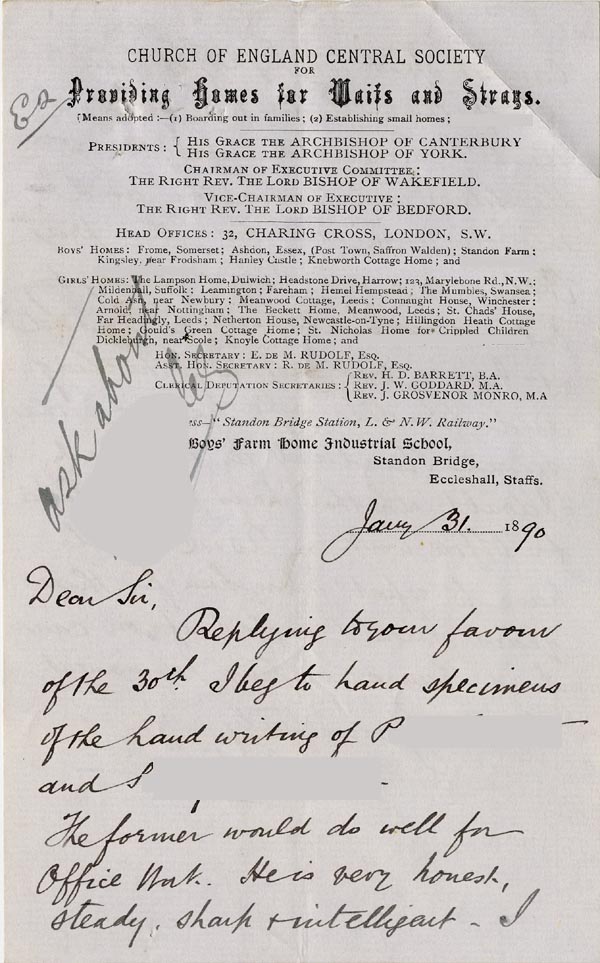 CHURCH OF ENGLAND CENTRAL SOCIETY
FOR
Providing Homes for Waifs and Strays.
(Means adopted :—(1) Boarding out in families; (2) Establishing small homes;
PRESIDENTS: { HIS GRACE THE ARCHBISHOP OF CANTERBURY
HIS GRACE THE ARCHBISHOP OF YORK.
CHAIRMAN OF EXECUTIVE COMMITTEE:
THE RIGHT REV. THE LORD BISHOP OF WAKEFIELD.
VICE-CHAIRMAN OF EXECUTIVE:
THE RIGHT REV. THE LORD BISHOP OF BEDFORD.
HEAD OFFICES: 32, CHARING CROSS, LONDON, S.W.
BOYS' HOMES: Frome, Somerset; Ashdon, Essex, (Post Town, Saffron Walden); Standon Farm;
Kingsley, near Frodsham; Hanley Castle; Knebworth Cottage Home; and
GIRLS' HOMES: The Lampson Home, Dulwich; Headstone Drive, Harrow; 123, Marylebone Rd., N.W.;
Mildenhall, Suffolk; Leamington; Fareham; Hemel Hempstead; The Mumbles, Swansea
Cold Ash, near Newbury; Meanwood Cottage, Leeds; Connaught House, Winchester;
Arnold, near Nottingham; The Beckett Home, Meanwood, Leeds; St. Chads' House,
Far Headingly, Leeds; Netherton House, Newcastle-on-Tyne; Hillingdon Heath Cottage
Home; Gould's Green Cottage Home; St. Nicholas Home for Crippled Children
Dickleburgh, near Scole; Knoyle Cottage Home; and
HON. SECRETARY: E. DE M. RUDOLF, ESQ.
ASST. HON. SECRETARY: R. DE M. RUDOLF, ESQ.
CLERICAL DEPUTATION SECRETARIES: { REV. H. D. BARRETT, B.A.
REV. J. W. GODDARD, M.A.
REV. J. GROSVENOR MONRO, M.A
ask about
ess—"Standon Bridge Station, L. & N.W. Railway."
Boys' Farm Home Industrial School,
Standon Bridge,
Eccleshall, Staffs.
Jany 31. 1890
Dear Sir,
Replying to your favour
of the 30th. I beg to hand specimens
of the hand writing of P
and S
The former would do well for
Office Work. He is very honest,
steady, sharp & intelligent - I